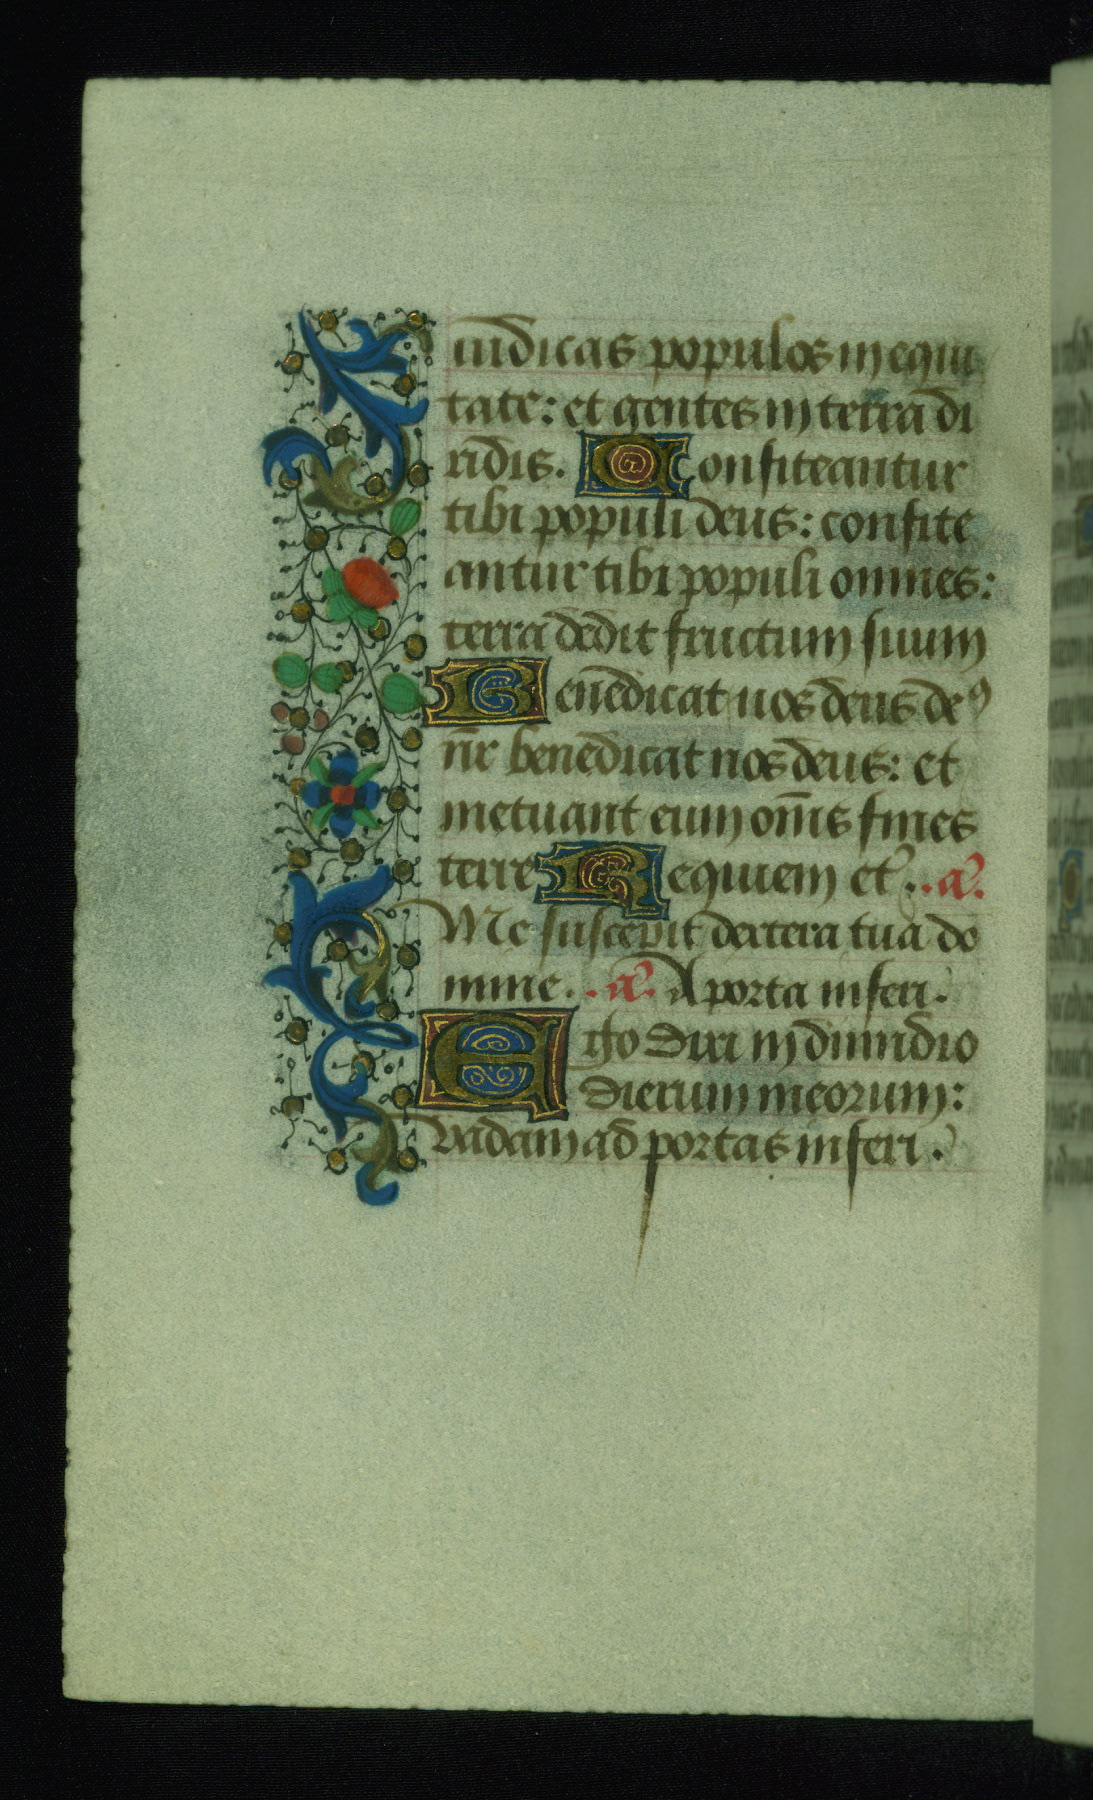 iudicas populos in equi
tate: et gentes in terra di
ridis. Confiteantur
tibi populi deus: confite
antur tibi populi omnes:
terra dedit fructum suum
Benedicat nos deus deꝰ
nr̄ benedicat nos deus: et
metuant eum om̄s fines
terre Requiem et̾. .a͞.
Me suscepit dextera tua do
mine. .a͞. A porta inferi.
Ego dixi in dimidio
dierum meorum:
vadam ad portas inferi.